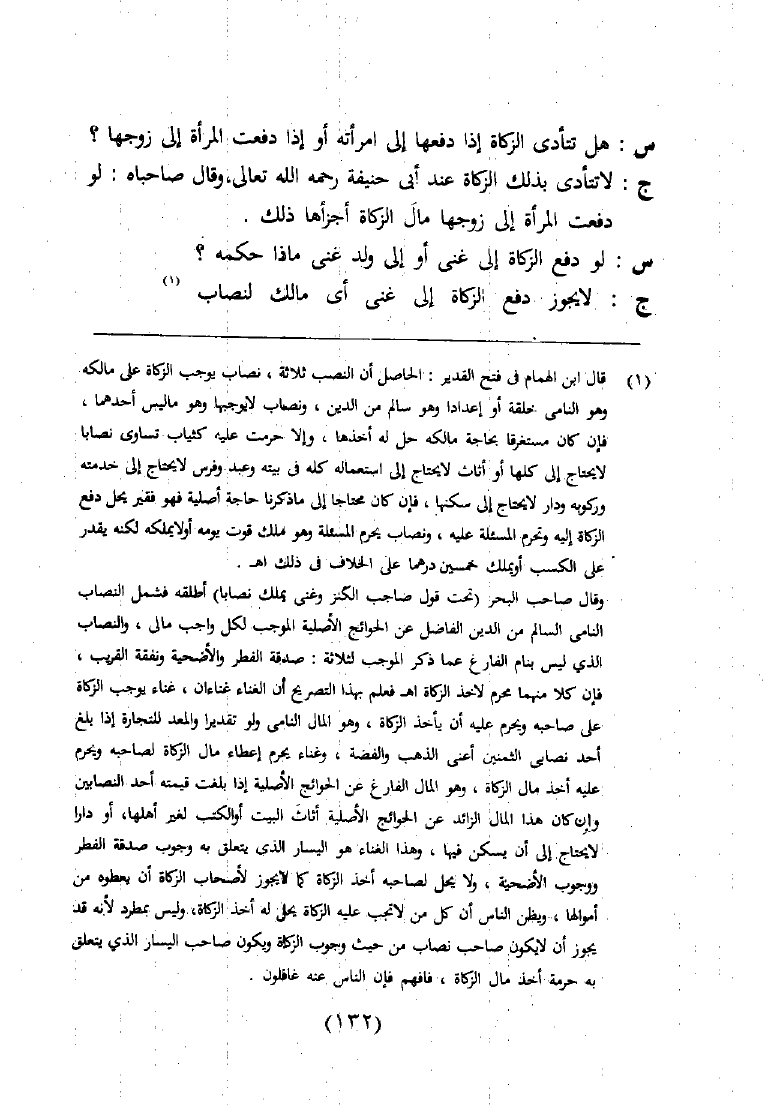 س : هل تتأدى الزكاة إذا دفعها إلى امرأته أو إذا دفعت المرأة إلى زوجها ؟
ج : لاتتأدى بذلك الزكاة عند أبى حنيفة رحمه الله تعالى،وقال صاحباه : لو
دفعت المرأة إلى زوجها مالَ الزكاة أجزأها ذلك .
س : لو دفع الزكاة إلى غنى أو إلى ولد غنى ماذا حكمه ؟
ج : لايجوز دفع الزكاة إلى غنى أى مالك لنصاب (١)
(١) قال ابن الهمام فى فتح القدير : الحاصل أن النصب ثلاثة ، نصاب يوجب الزكاة على مالكه
وهو النامى خلقة أو إعدادا وهو سالم من الدين ، ونصاب لايوجبها وهو ماليس أحدهما ،
فإن كان مستغرقا بحاجة مالكه حل له أخذها ، وإلا حرمت عليه كثياب تساوى نصابا
لايحتاج إلى كلها أو أثاث لايحتاج إلى استعماله كله فى بيته وعبد وفرس لايحتاج إلى خدمته
وركوبه ودار لايحتاج إلى سكنها ، فإن كان محتاجا إلى ماذكرنا حاجة أصلية فهو فقير يحل دفع
الزكاة إليه وتحرم المسئلة عليه ، ونصاب يحرم المسئلة وهو ملك قوت يومه أولايملكه لكنه يقدر
على الكسب أويملك خمسين درهما على الخلاف فى ذلك اهـ .
وقال صاحب البحر (تحت قول صاحب الكنز وغنى يملك نصابا) أطلقه فشمل النصاب
النامى السالم من الدين الفاضل عن الحوائج الأصلية الموجب لكل واجب مالى ، والنصاب
الذي ليس بنام الفارغ عما ذكر الموجب لثلاثة : صدقة الفطر والأضحية ونفقة القريب ،
فإن كلا منهما محرم لاخذ الزكاة اهـ فعلم بهذا التصريح أن الغناء غناءان ، غناء يوجب الزكاة
على صاحبه ويحرم عليه أن يأخذ الزكاة ، وهو المال النامى ولو تقديرا والمعد للتجارة إذا بلغ
أحد نصابى الثمنين أعنى الذهب والفضة ، وغناء يحرم إعطاء مال الزكاة لصاحبه ويحرم
عليه أخذ مال الزكاة ، وهو المال الفارغ عن الحوائج الأصلية إذا بلغت قيمته أحد النصابين
وإن كان هذا المال الزائد عن الحوائج الأصلية أثاث البيت أوالكتب لغير أهلها، أو دارا
لايحتاج إلى أن يسكن فيها ، وهذا الغناء هو اليسار الذى يتعلق به وجوب صدقة الفطر
ووجوب الأضحية ، ولا يحل لصاحبه أخذ الزكاة كما لايجوز لأصحاب الزكاة أن يعطوه من
أموالها ، ويظن الناس أن كل من لاتجب عليه الزكاة يحل له أخذ الزكاة، وليس بمطرد لأنه قد
يجوز أن لايكون صاحب نصاب من حيث وجوب الزكاة ويكون صاحب اليسار الذي يتعلق
به حرمة أخذ مال الزكاة ، فافهم فإن الناس عنه غافلون .
(١٣٢)